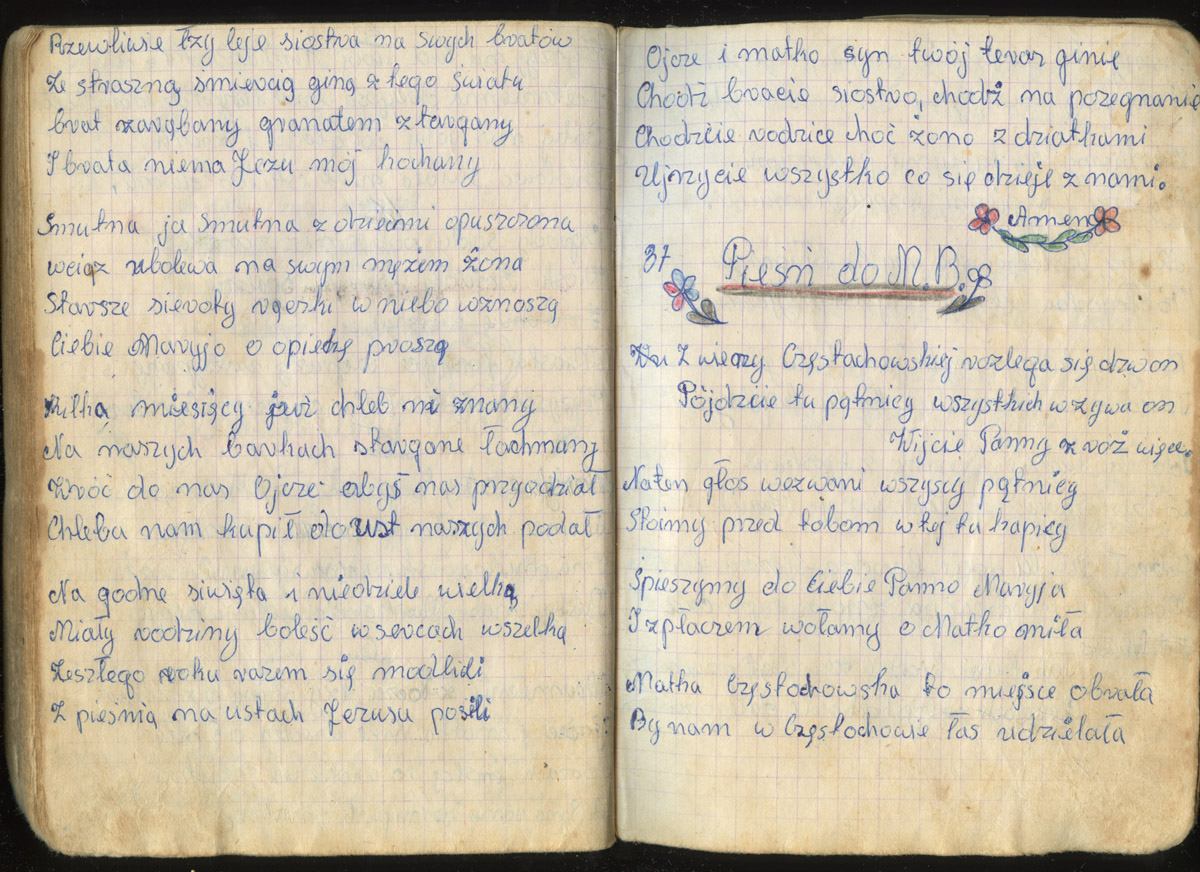 Rzewliwie łzy leje siostra na swych bratów
Że straszną śmiercią giną z tego świata
brat zarąbany granatem ztargany
I brata niema Jezu mój kochany
Smutna ja smutna z dziećmi opuszczona
wciąż ubolewa na swym mężem żona
Starsze sieroty rączki w niebo wznoszą
Ciebie Maryjo o opiekę proszą
Kilka miesięcy już chleb nie znany
Na naszych barkach stargane łachmany
Zwóć do nas Ojcze abyś nas przyodział
Chleba nam kupił do ust naszych podał
Na godne siwięta i niedziele wielką
Miały rodziny boleść w sercach wszelką
Zeszłego roku razem się modlidi
Z pieśnią na ustach Jezusu posili
Ojcze i matko syn twój teraz ginie
Chodź bracie siostro, chodź na pozegnanie
Chodzcie rodzice choć żono z dziatkami
Ujrzycie wszystko co się dzieje z nami.
Amen
37 Pieśń do M.B.
Z wierzy Częstachowskiej rozlega się dzwon
Pójdzcie tu pątnicy wszystkich wzywa on
Wijcie Panny z róż więce.
Naten głos wezwani wszyscy pątnicy
Stoimy przed tobom w tej tu kapicy
Spieszymy do Ciebie Panno Maryja
I zpłaczem wołamy o Matko miła
Matka Częstochowska to miejsce obrała
By nam w Częstochowie łas udzielała